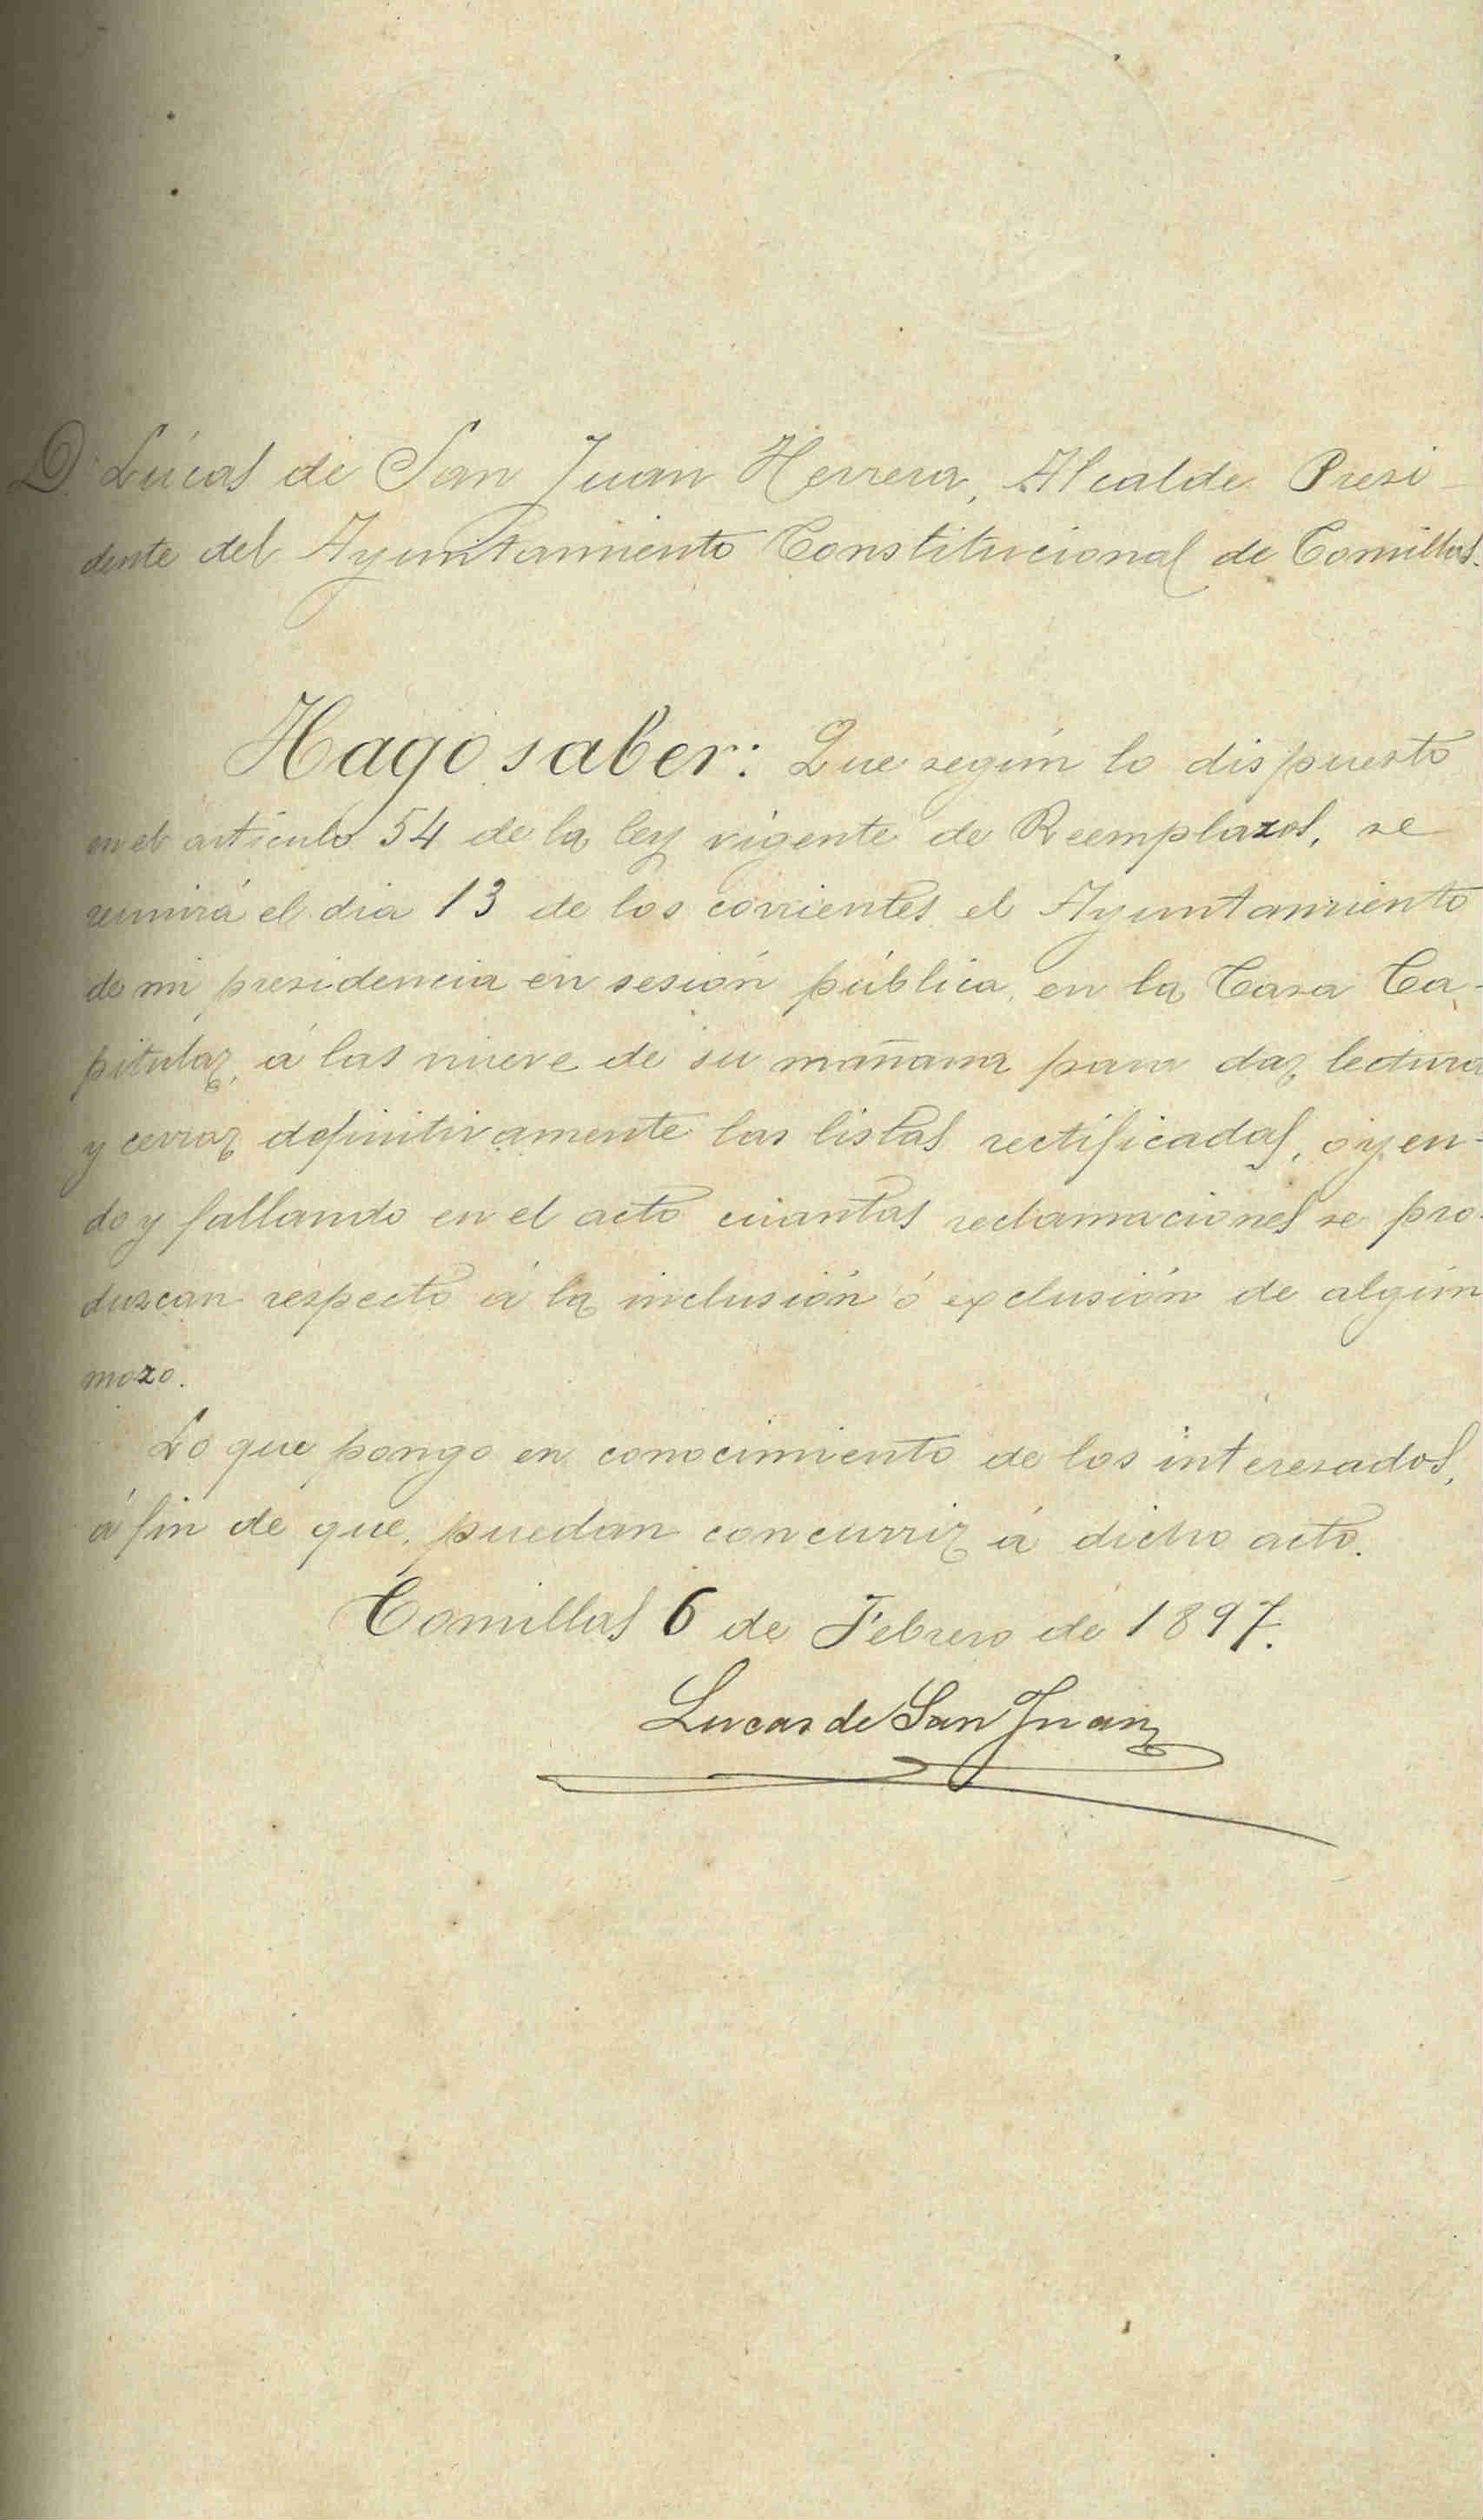 D. Lúcas de San Juan Herrera, Alcalde Presi-
dente del Ayuntamiento Constitucional de Comillas.
Hago saber: Que según lo dispuesto
en el artículo 54 de la ley vigente de Reemplazos, se
reunirá el dia 13 de los corrientes el Ayuntamiento
de mi presidencia en sesión pública, en la Casa Ca-
pitular, á las nueve de su mañana para dar lectura
y cerrar definitivamente las listas rectificadas, oyen-
do y fallando en el acto cuantas reclamaciones se pro-
duzcan respecto á la inclusión ó exclusión de algún
mozo.
Lo que pongo en conocimiento de los interesados,
á fin de que puedan concurrir á dicho acto.
Comillas 6 de Febrero de 1897.
Lucas de San Juan